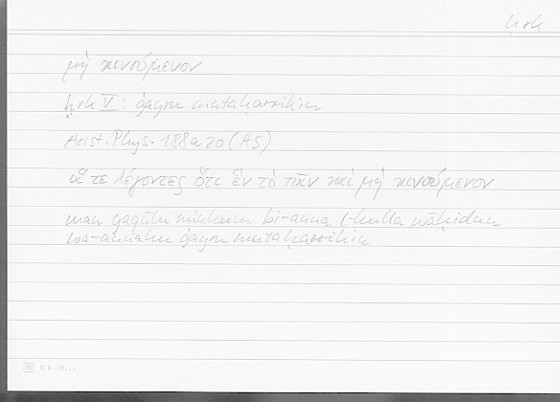 ḥrk
μὴ κινούμενον
ḥrk V : ġayru mutaḥarrikin
Arist. Phys. 188a20 (HS)
οἵ τε λέγοντες ὅτι ἓν τὸ πᾶν καὶ μὴ κινούμενον
man yaqūlu minhum bi-anna l-kulla wāḥidun
wa-annahu ġayru mutaḥarrikin